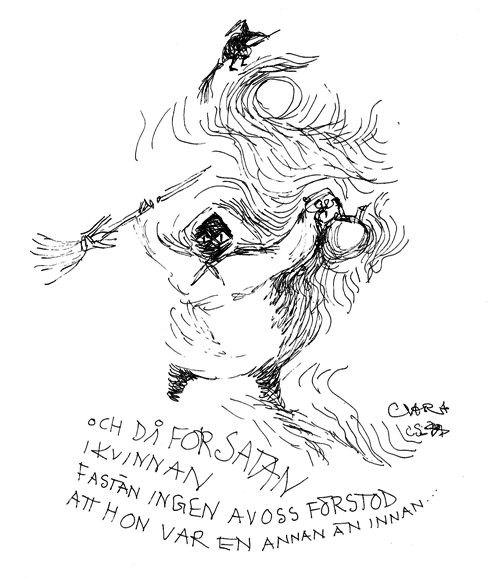 OCH DÅ FOR SATAN
I KVINNAN
FASTÄN INGEN AV OSS FÖRSTOD
ATT HON VAR EN ANNAN ÄN INNAN...
CLARA